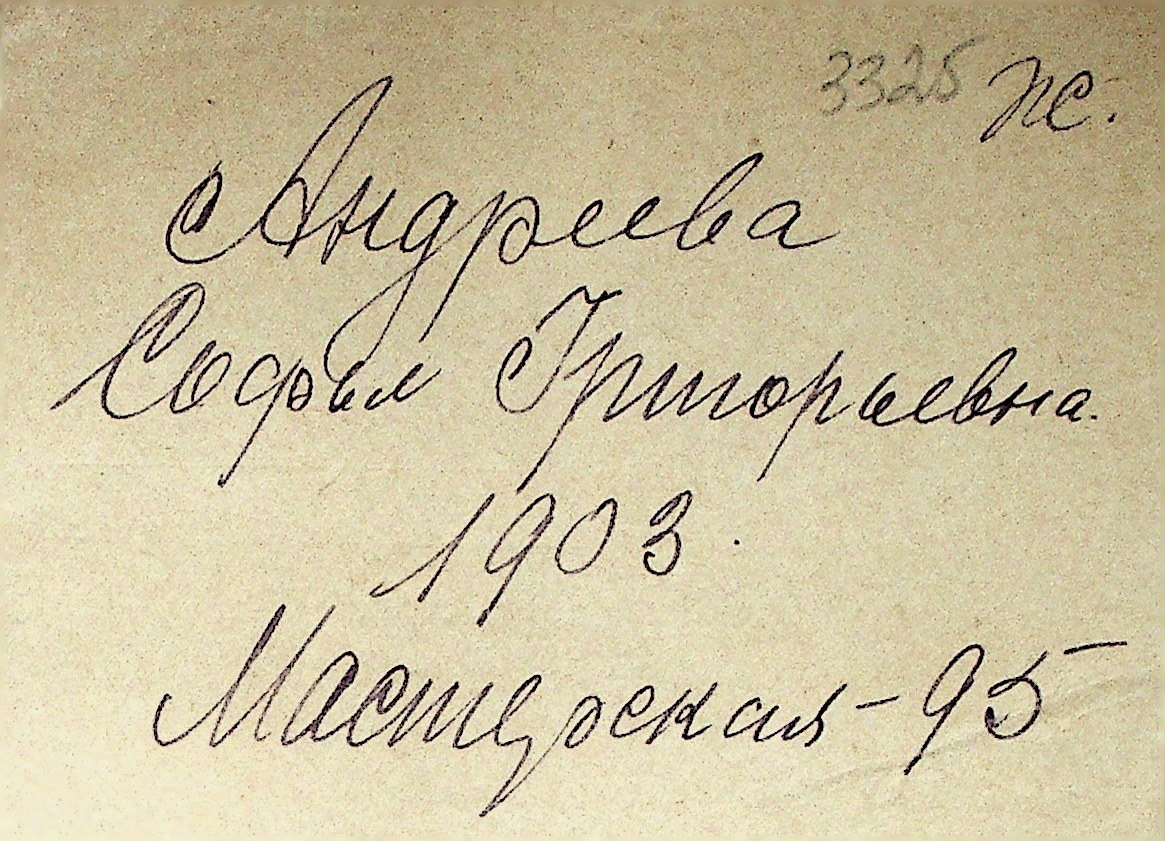 3325 ж.
Андреева
Софья Григорьевна.
1903.
Мастерская - 95